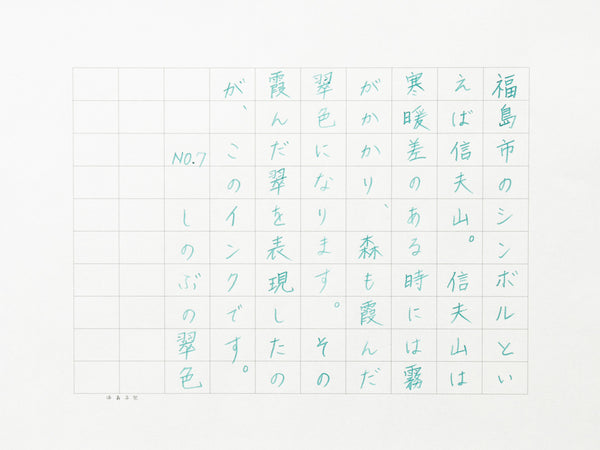 福島市のシンボルとい
えば信夫山。信夫山は
寒暖差のある時には霧
がかかり、森も霞んだ
翠色になります。その
霞んだ翠を表現したの
が、このインクです。
NO.7 しのぶの翠色